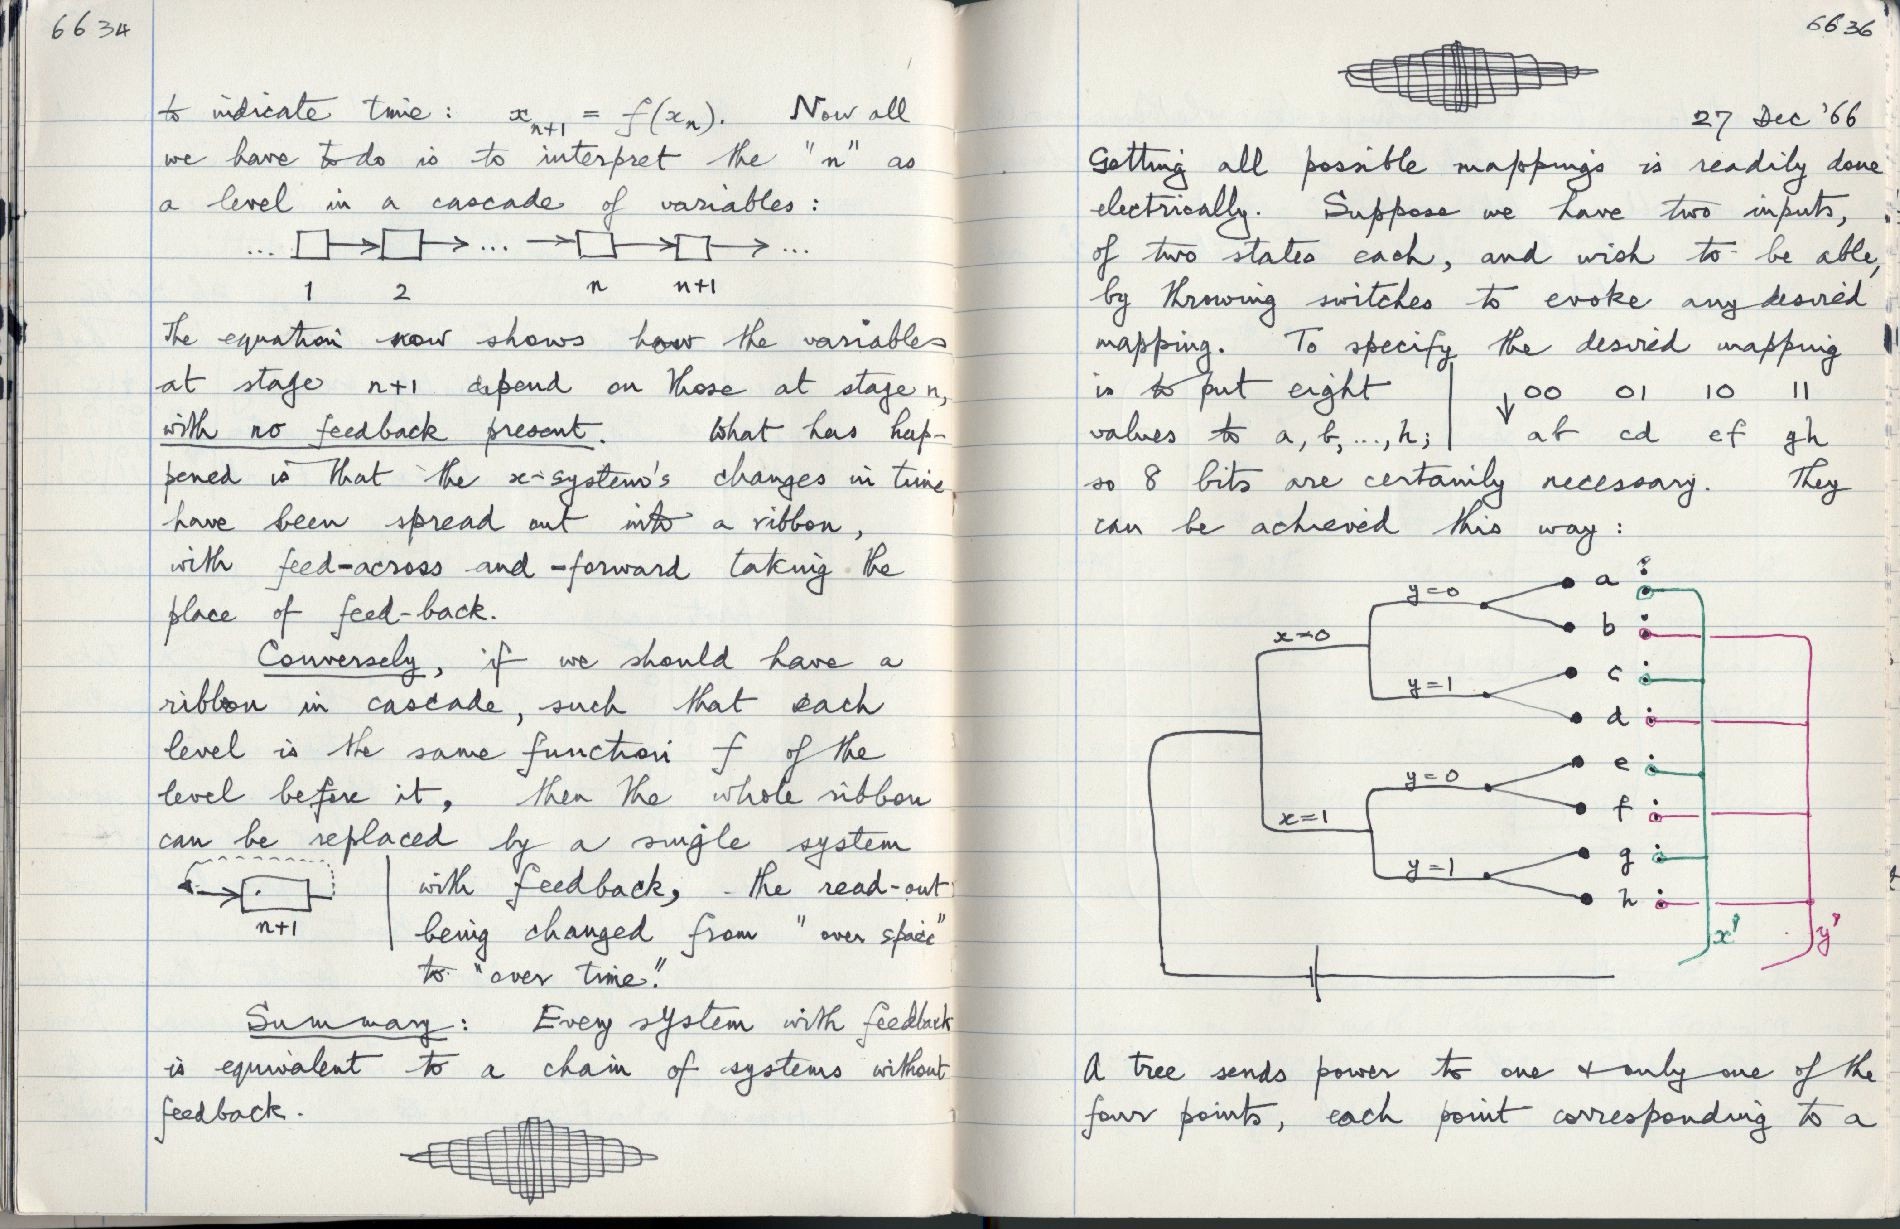 6634
to indicate time : xn+1 = f(xn). Now all
we have to do is to interpret the "n" as
a level in a cascade of variables :
... → → ... → → → ...
1 2 n n+1
The equation now shows how the variables
at stage n+1 depend on those at stage n,
with no feedback present. What has hap-
pened is that the x-system's changes in time
have been spread out into a ribbon,
with feed-across and -forward taking the
place of feed-back.
Conversely, if we should have a
ribbon in cascade, such that each
level is the same function f of the
level before it, then the whole ribbon
can be replaced by a single system
with feedback, the read-out
n+1
being changed from "over space"
to "over time."
Summary : Every system with feedback
is equivalent to a chain of systems without
feedback.
6636
27 Dec '66
Getting all possible mappings is readily done
electrically. Suppose we have two inputs,
of two states each, and wish to be able,
by throwing switches to evoke any desired
mapping. To specify the desired mapping
is to put eight ↓ 00 01 10 11
values to a, b, ..., h; ab cd ef gh
so 8 bits are certainly necessary. They
can be achieved this way :
y=0 a
x=0 b
y=1 c
d
y=0 e
x=1 f
y=1 g
h
x' y'
A tree sends power to one & only one of the
four points, each point corresponding to a